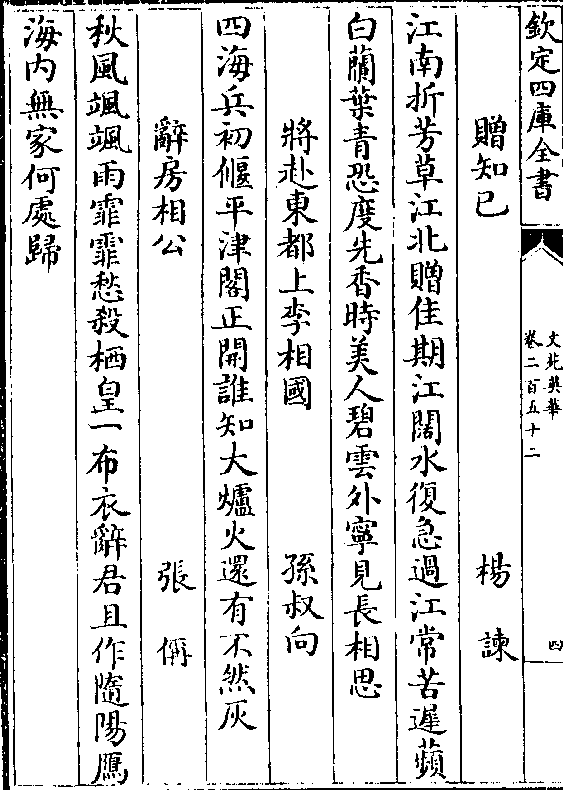 欽定四庫全書
文苑英華
卷二百五十二
四
贈知已 楊諫
江南折芳草江北贈佳期江闊水復急過江常苦遲蘋
白蘭葉青恐度先香時美人碧雲外寧見長相思
將赴東都上李相國 孫叔向
四海兵初偃平津閣正開誰知大爐火還有不然灰
辭房相公 張偁
秋風颯颯雨霏霏愁殺栖皇一布衣辭君且作隨陽鴈
海内無家何處歸